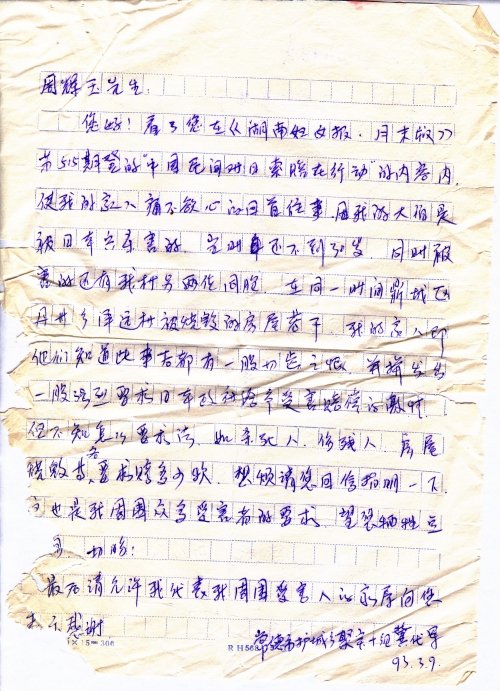 周辉玉先生:
您好!看了您在《湖南妇女报·月末版》
第515期登的"中国民间对日索赔在行动"的内容内,
使我的家人痛不欲心的回首往事,因我的大伯是
被日本兵杀害的,当时还不到30岁,同时被
害的还有我村另两位同胞,在同一时间鼎城区
丹洲乡 村被烧毁的房屋若干,我的家人即
他们知道此事后都有一股切齿之恨,并将发出
一股强烈要求日本政府给予受害赔偿的激情,
但不知怎么要求法,如杀死人、伤残人、房屋
烧毁等,各要求赔多少款,想烦请您回信指明一下,
这也是我周围众多受害者的要求,望
切盼:
最后请允许我代表我周围受害人的亲属向您
表示感谢
常德市护城乡 十组 
93.3.9.
15=300